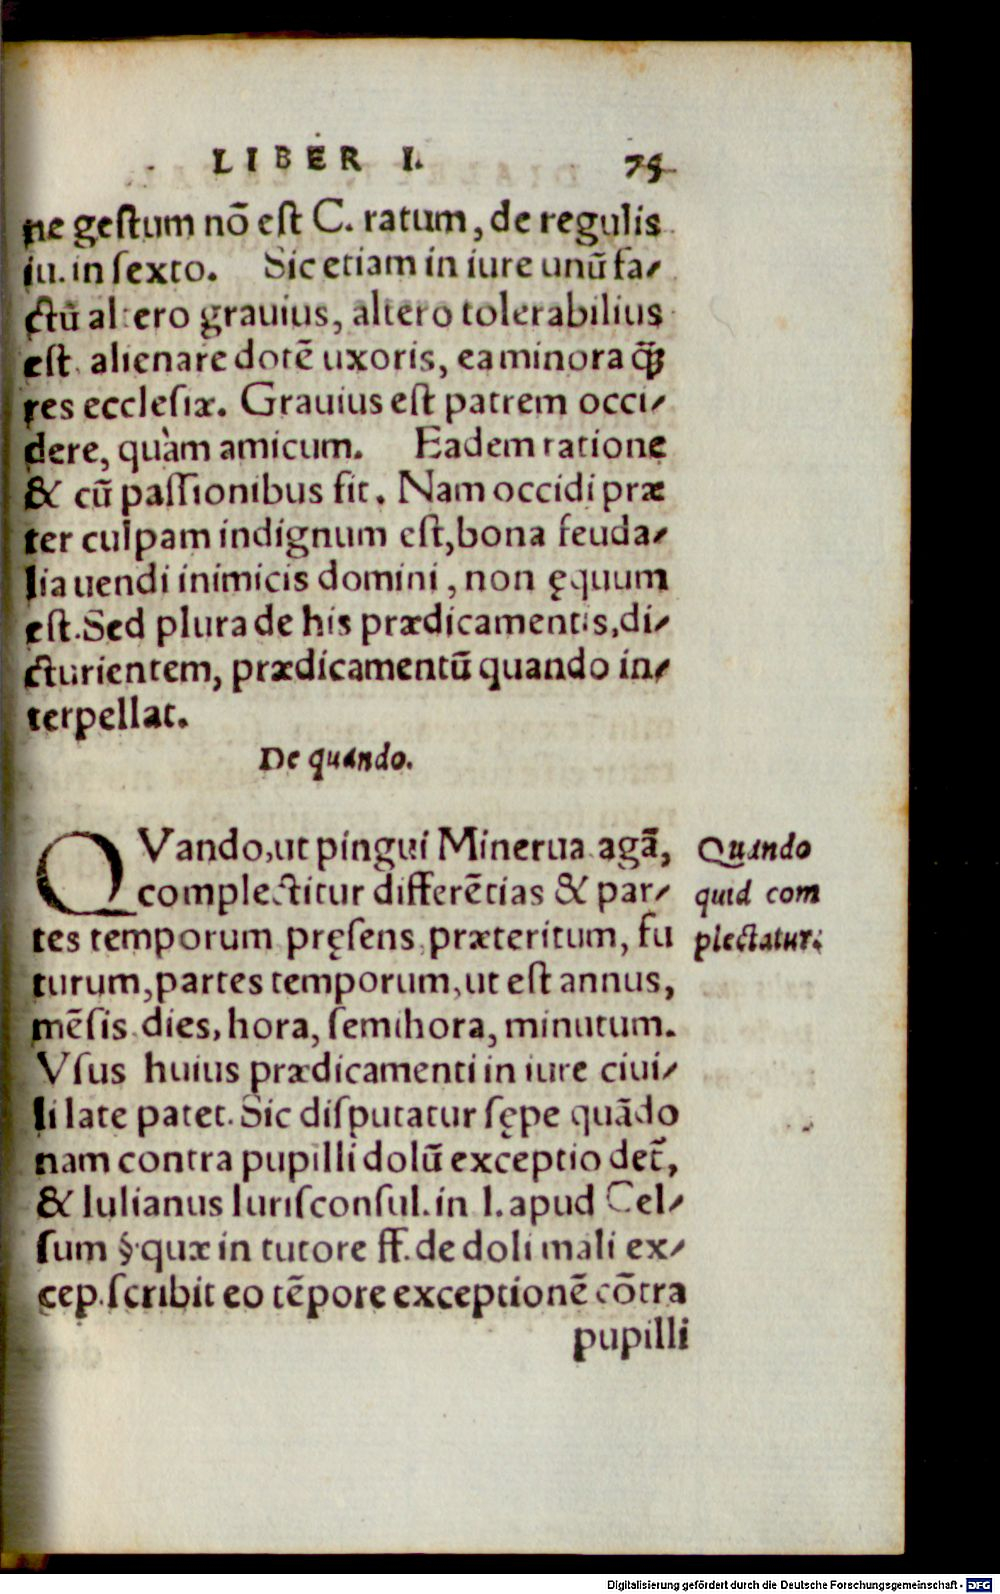 LIBER I. 75
ne gestum nō est C. ratum, de regulis
iu. in sexto. Sic etiam in iure unū fa-
ctū altero grauius, altero tolerabilius
est alienare dotē uxoris, ea minora ꝙ̃
res ecclesiæ. Grauius est patrem occi-
dere, quàm amicum. Eadem ratione
& cū passionibus fit. Nam occidi præ
ter culpam indignum est, bona feuda-
lia uendi inimicis domini, non ęquum
est. Sed plura de his prædicamentis, di-
cturientem, prædicamentū quando in-
terpellat.
De quando.
QVando, ut pingui Minerua agā,
complectitur differētias & par-
tes temporum pręsens præteritum, fu
turum, partes temporum, ut est annus,
mēsis dies, hora, semihora, minutum.
Vsus huius prædicamenti in iure ciui-
li late patet. Sic disputatur sępe quādo
nam contra pupilli dolū exceptio det̃,
& Iulianus Iurisconsul. in l. apud Cel-
sum §. quæ in tutore ff. de doli mali ex-
cep. scribit eo tēpore exceptionē cōtra
pupilli
Quando
quid com
plectatur.
Digitalisierung gefördert durch die Deutsche Forschungsgemeinschaft - DFG